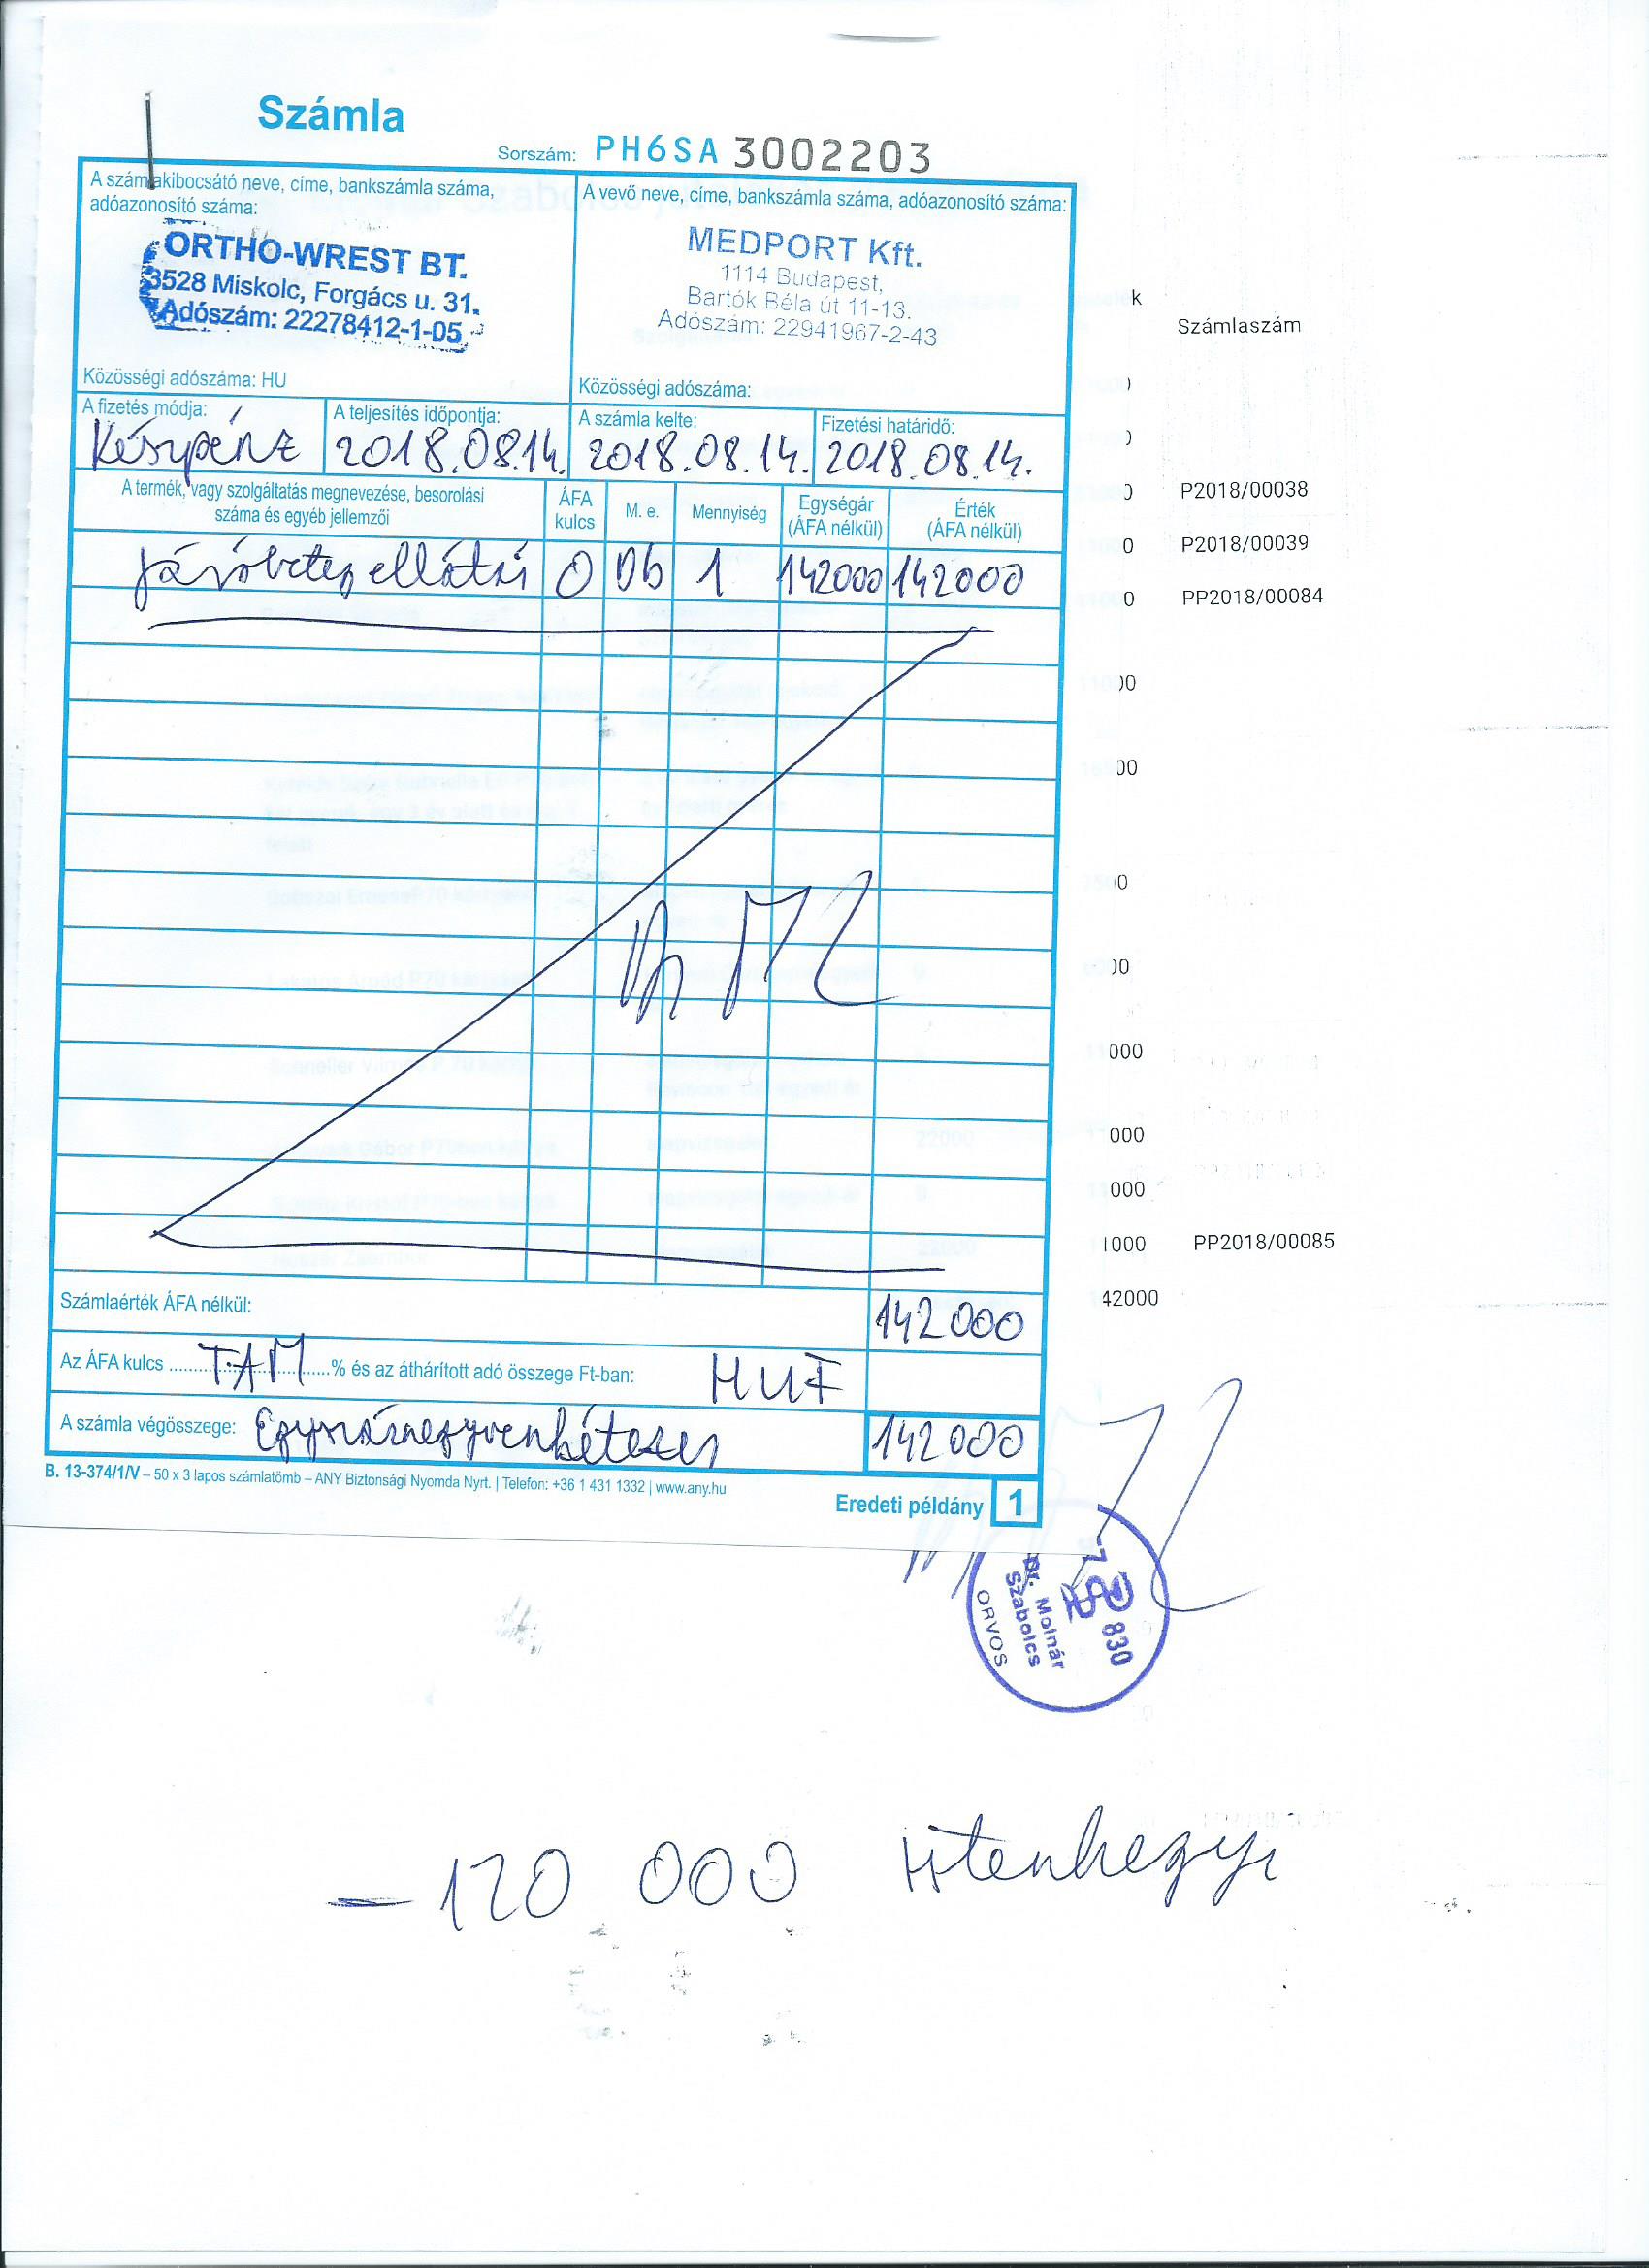 Számla
Sorszám: PH6SA 3002203
A számlakibocsátó neve, címe, bankszámla száma,
adóazonosító száma:
ORTHO-WREST BT.
3528 Miskolc, Forgács u. 31.
Adószám: 22278412-1-05
Közösségi adószáma: HU
A vevő neve, címe, bankszámla száma, adóazonosító száma:
MEDPORT Kft.
1114 Budapest,
Bartók Béla út 11-13.
Adószám: 22941967-2-43
Közösségi adószáma:
A fizetés módja:
Készpénz
A teljesítés időpontja:
2018.08.14.
A számla kelte:
2018.08.14.
Fizetési határidő:
2018.08.14.
A termék, vagy szolgáltatás megnevezése, besorolási
száma és egyéb jellemzői
ÁFA
kulcs
M. e.
Mennyiség
Egységár
(ÁFA nélkül)
Érték
(ÁFA nélkül)
Járóbeteg ellátás 0 Db 1 142000 142000
Számlaérték ÁFA nélkül: 142000
Az ÁFA kulcs TAM % és az áthárított adó összege Ft-ban: HUF
A számla végösszege: Egyszáznegyvenkétezer 142000
B. 13-374/1/V – 50 x 3 lapos számlatömb – ANY Biztonsági Nyomda Nyrt. | Telefon: +36 1 431 1332 | www.any.hu
Eredeti példány 1
k
Számlaszám
P2018/00038
0 P2018/00039
0 PP2018/00084
00
00
0
00
000
000
000
1000 PP2018/00085
42000
Dr. Molnár
Szabolcs
ORVOS
830
– 120 000 Istenhegyi